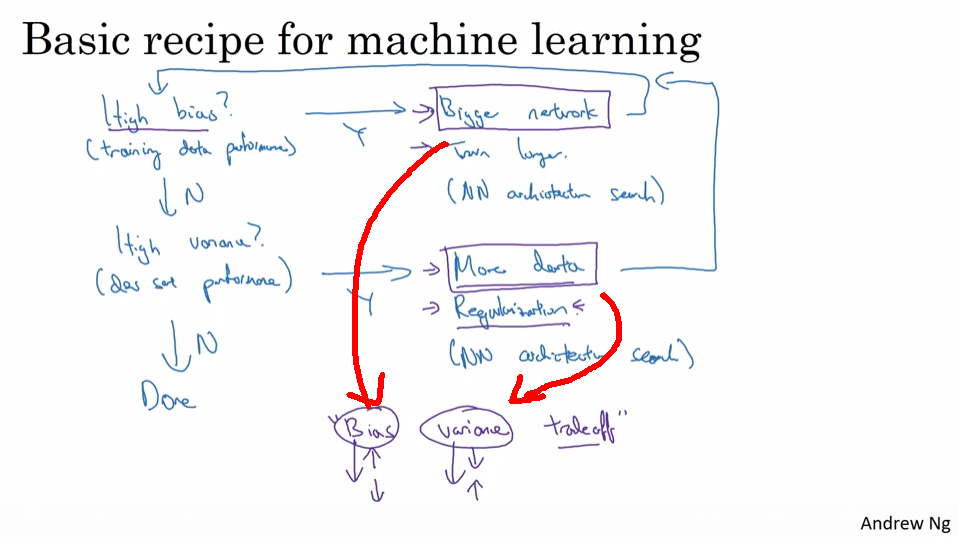 Basic recipe for machine learning
High bias?
Y
Bigger network
(training data performance)
Train longer.
N
(NN architecture search)
High variance?
(dev set performance)
Y
More data
Regularization
N
(NN architecture search)
Done
"Bias variance tradeoff"
Andrew Ng